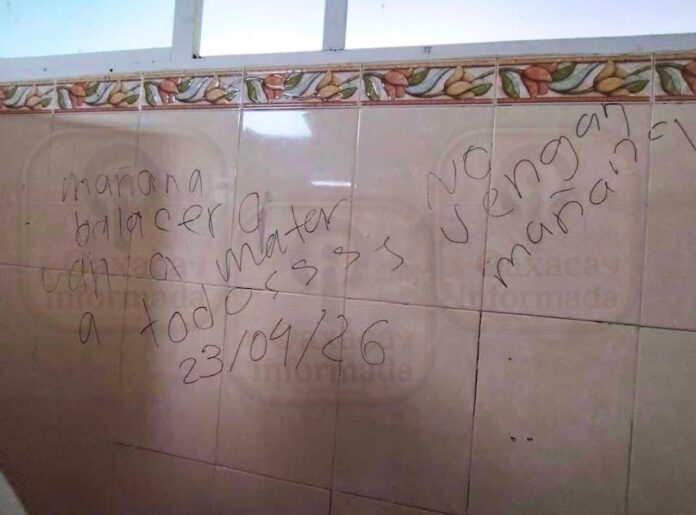 mañana
balacera
van a matar
a todosssss
23/04/26
NO
vengan
mañana
Oaxaca
Informada
Oaxaca
Informada
Informada